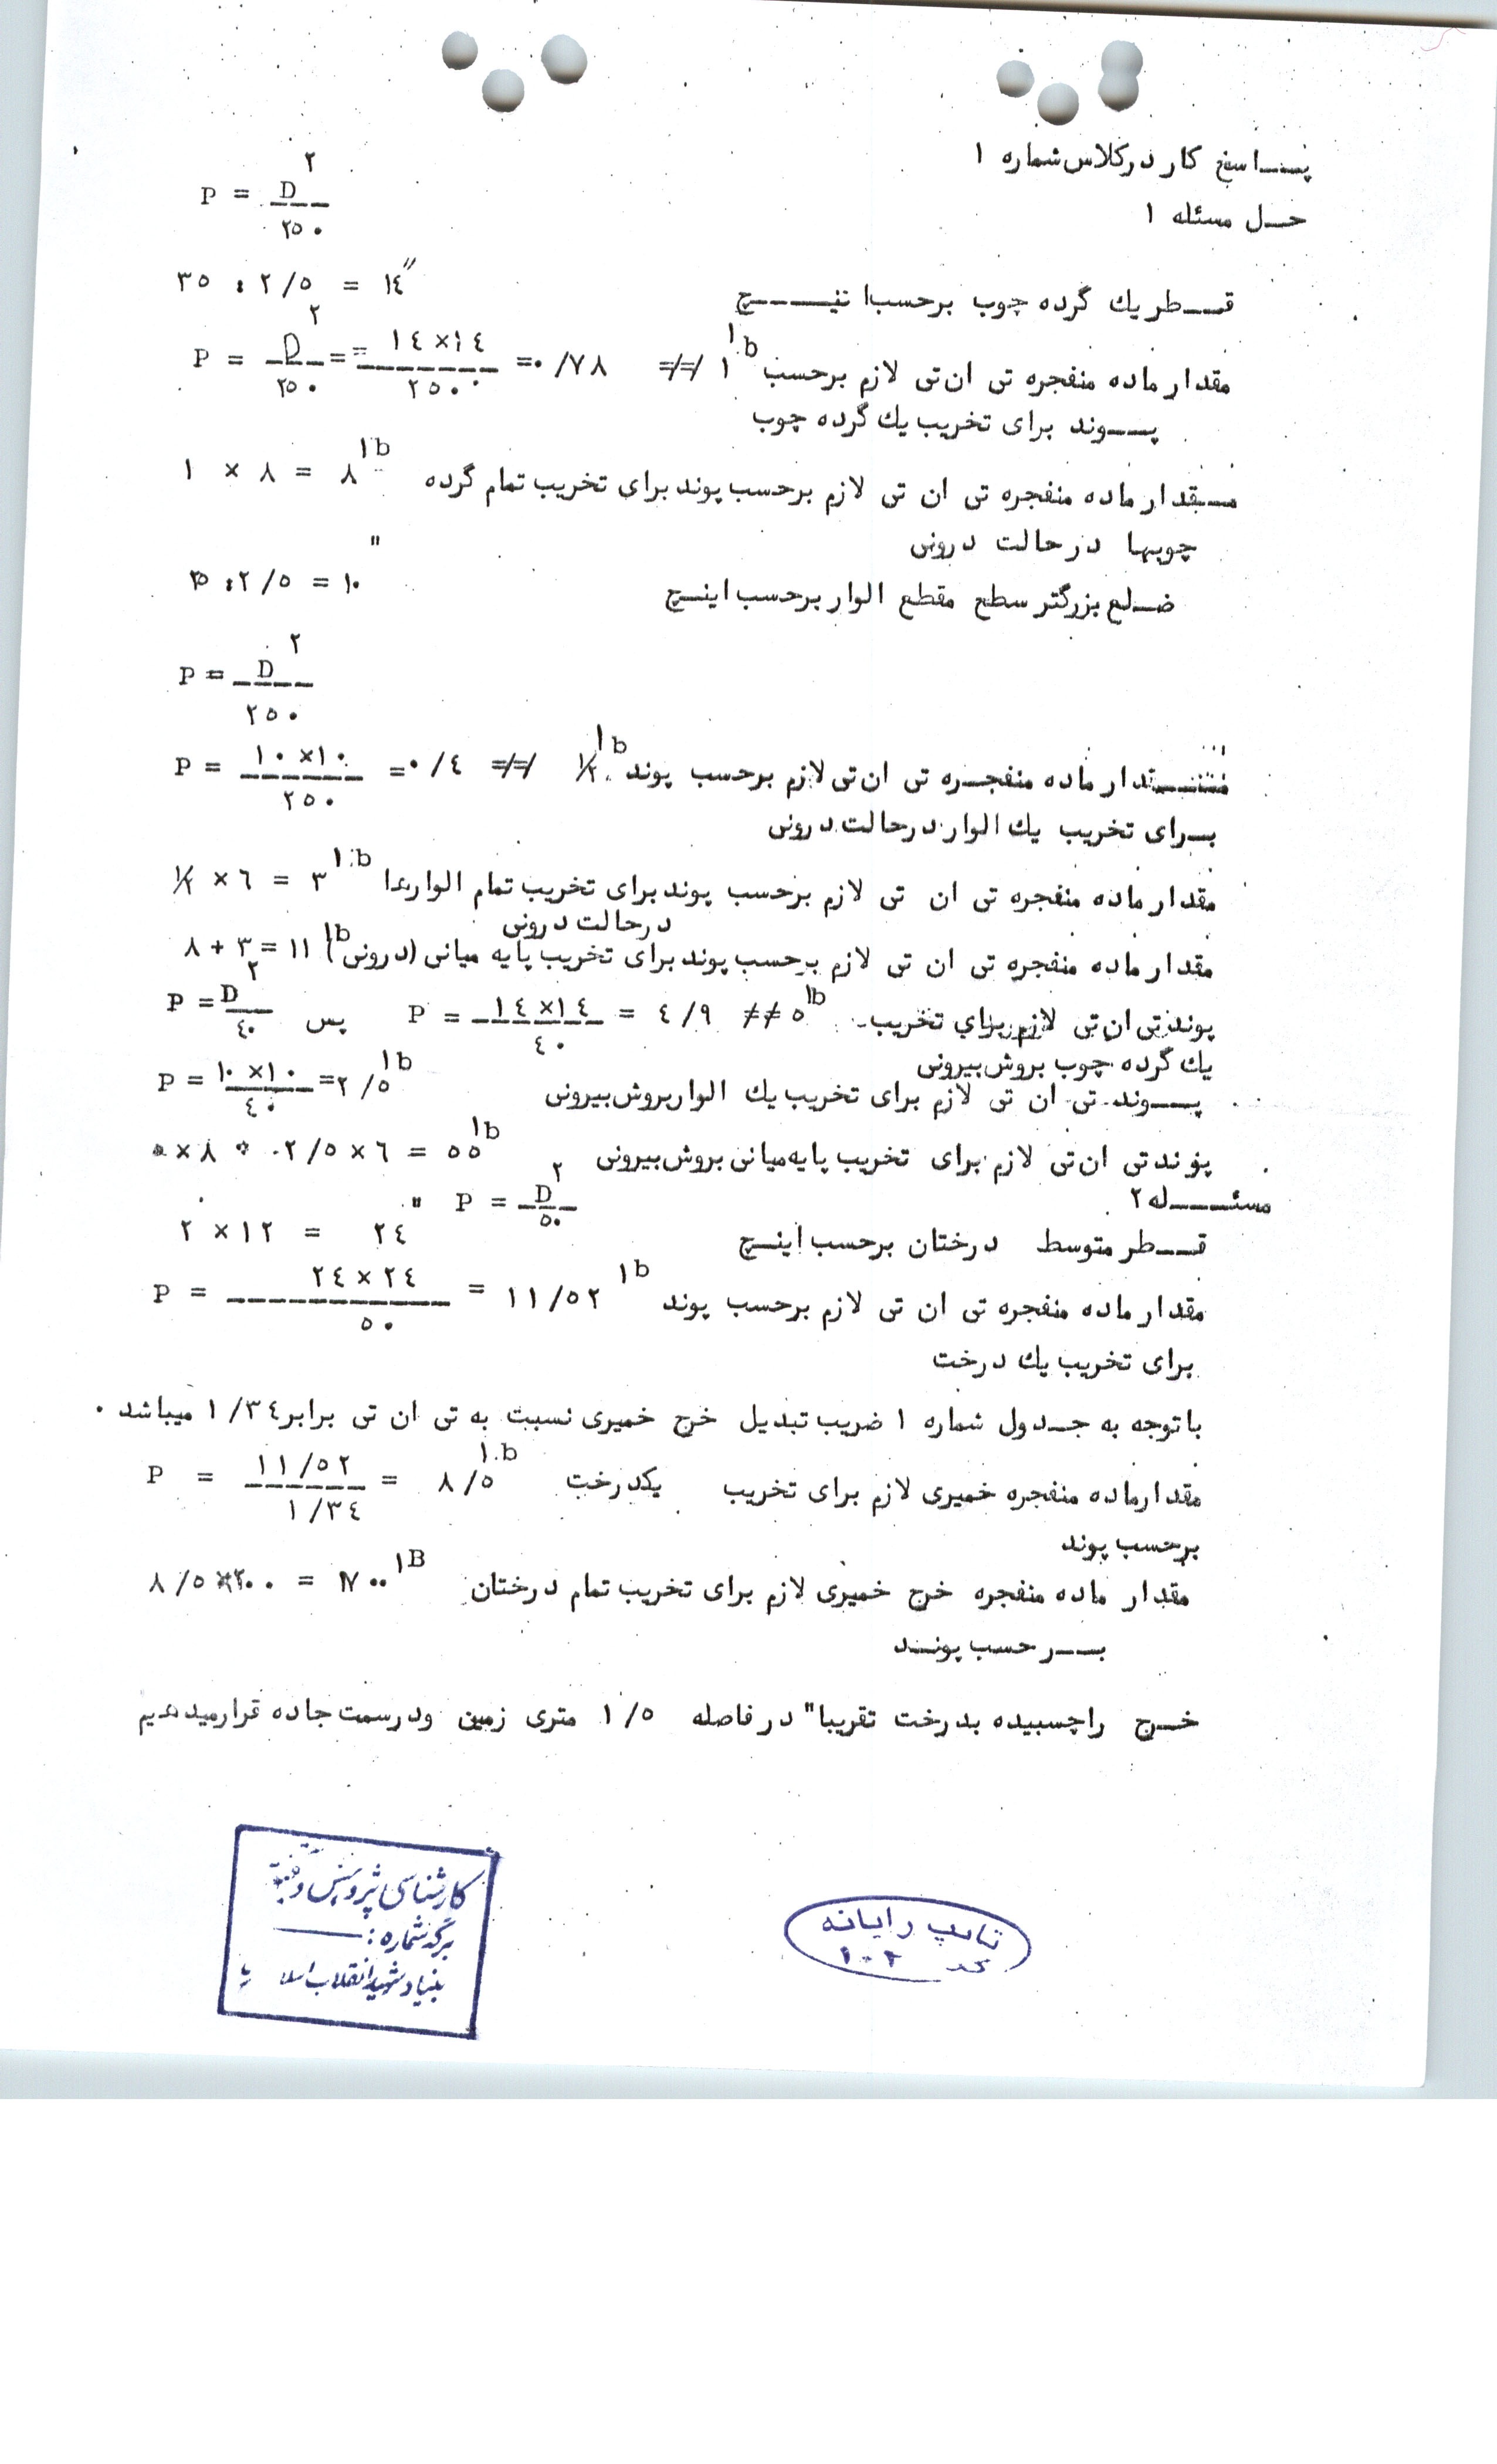 پاسخ کار در کلاس شماره ۱
حل مسئله ۱
P = D²/۲۵۰
قطر یك گرده چوب برحسب اینچ ۳۵ : ۲/۵ = ۱٤"
مقدار ماده منفجره تی ان تی لازم برحسب P = D²/۲۵۰ = ۱٤×۱٤/۲۵۰ = ۰/۷۸ ≠≠ ۱ lb
پوند برای تخریب یك گرده چوب
مقدار ماده منفجره تی ان تی لازم برحسب پوند برای تخریب تمام گرده ۱ × ۸ = ۸ lb
چوبها در حالت درونی
ضلع بزرگتر سطح مقطع الوار برحسب اینچ ۲۵ : ۲/۵ = ۱۰"
P = D²/۲۵۰
مقدار ماده منفجره تی ان تی لازم برحسب پوند P = ۱۰×۱۰/۲۵۰ = ۰/٤ ≠≠ ۱/۲ lb
برای تخریب یك الوار در حالت درونی
مقدار ماده منفجره تی ان تی لازم برحسب پوند برای تخریب تمام الوارها ۱/۲ × ٦ = ۳ lb
در حالت درونی
مقدار ماده منفجره تی ان تی لازم برحسب پوند برای تخریب پایه میانی (درونی) ۸ + ۳ = ۱۱ lb
پوند تی ان تی لازم برای تخریب P = D²/٤۰ پس P = ۱٤×۱٤/٤۰ = ٤/۹ ≠≠ ۵ lb
یك گرده چوب بروش بیرونی
پوند تی ان تی لازم برای تخریب یك الوار بروش بیرونی P = ۱۰×۱۰/٤۰ = ۲/۵ lb
پوند تی ان تی لازم برای تخریب پایه میانی بروش بیرونی ۵×۸ + ۲/۵×٦ = ۵۵ lb
مسئله ۲ P = D²/۵۰
قطر متوسط درختان برحسب اینچ ۲ × ۱۲ = ۲٤"
مقدار ماده منفجره تی ان تی لازم برحسب پوند P = ۲٤×۲٤/۵۰ = ۱۱/۵۲ lb
برای تخریب یك درخت
با توجه به جدول شماره ۱ ضریب تبدیل خرج خمیری نسبت به تی ان تی برابر ۱/۳٤ میباشد .
مقدار ماده منفجره خمیری لازم برای تخریب یکدرخت P = ۱۱/۵۲ / ۱/۳٤ = ۸/۵ lb
برحسب پوند
مقدار ماده منفجره خرج خمیری لازم برای تخریب تمام درختان ۸/۵×۲۰۰ = ۱۷۰۰ lB
برحسب پوند
خرج را چسبیده بدرخت تقریبا" در فاصله ۱/۵ متری زمین ودر سمت جاده قرار میدهیم
تایپ رایانه
کد ۱۰۲
کارشناسی پژوهش و
برگ شماره :
بنیاد شهید انقلاب اسلامی